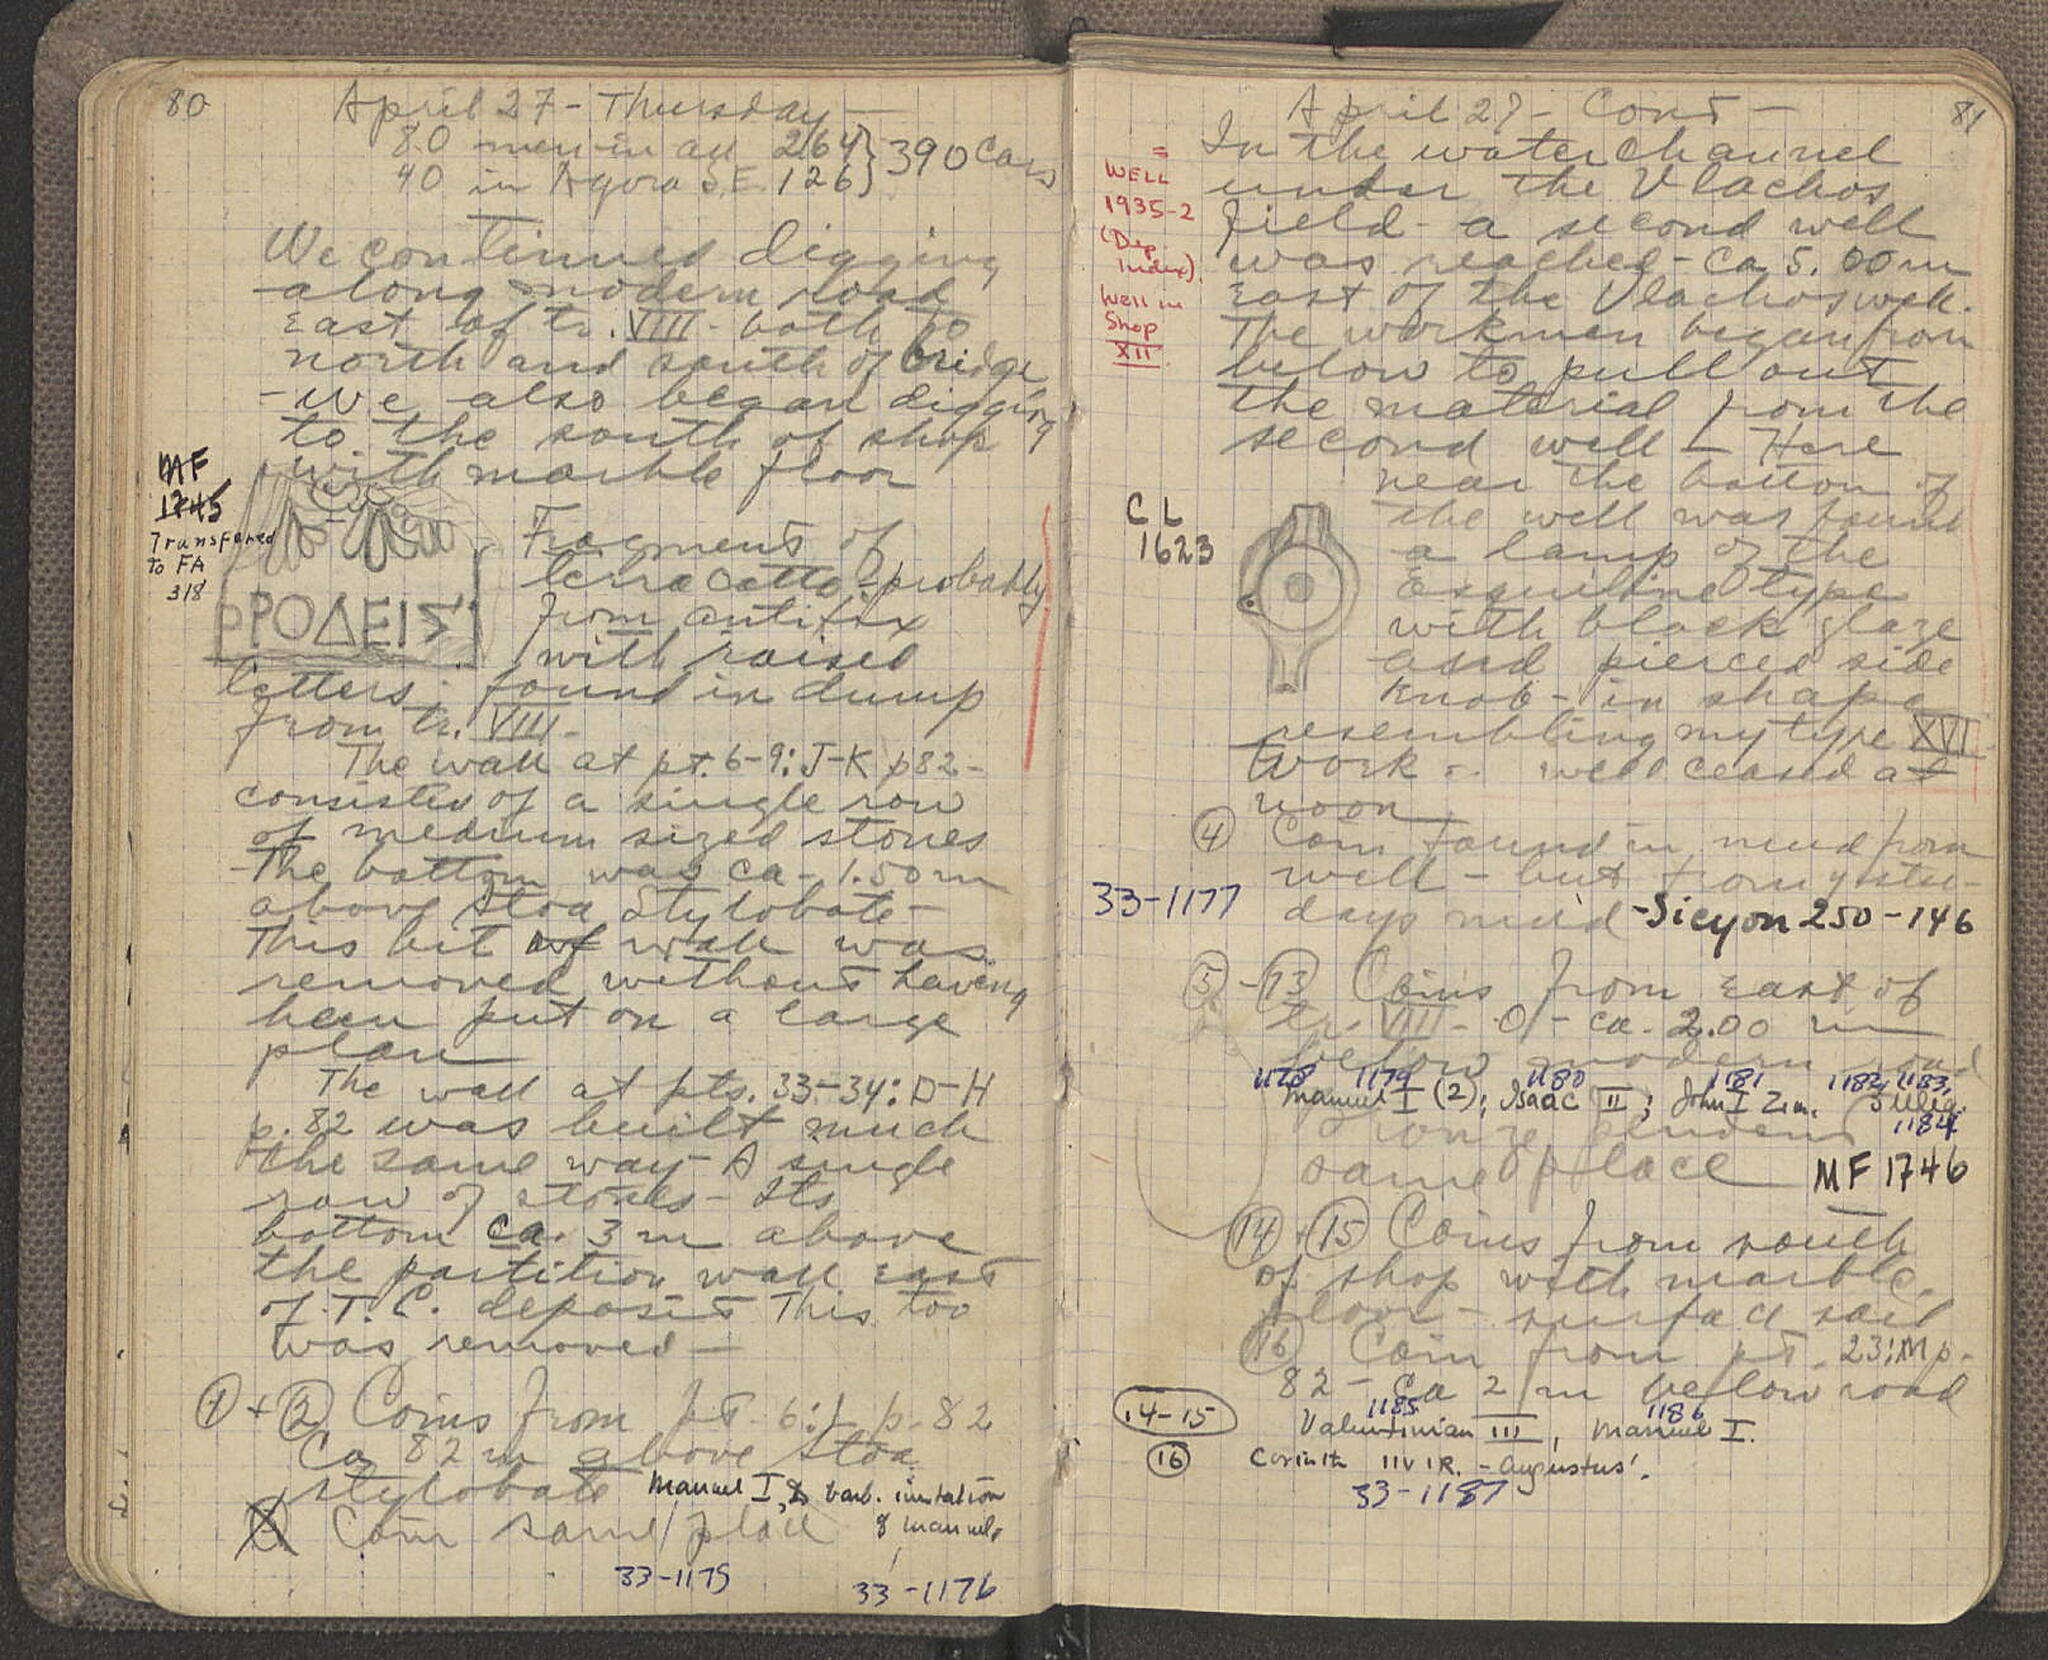 80
April 27 - Thursday -
80 men in all 264 } 390 Cars
40 in Agora S.E. 126
We continued digging
along modern road
East of tr. VIII - both to
north and south of bridge
- We also began digging
to the south of shop
with marble floor
MF
1745
Transfered
to FA
318
ΡΡΟΔΕΙΣ
Fragments of
terra cotta - probably
from antifix
with raised
letters - found in dump
from tr. VIII -
The wall at pt. 6-9: J-K p82 -
consisted of a single row
of medium sized stones
- The bottom was ca - 1.50 m
above Stoa Stylobate -
This bit of wall was
removed without having
been put on a large
plan
The wall at pts. 33-34: D-H
p. 82 was built much
the same way - A single
row of stones - Its
bottom ca. 3 m above
the partition wall east
of T.C. deposit This too
was removed -
1 + 2 Coins from pt. 6: p. 82
Ca 82 m above Stoa
stylobate Manuel I, & barb. imitation
of Manuel.
Coin same place
33-1175
33-1176
81
April 27 - Cont -
In the water channel
under the Vlachos
field - a second well
was reached - ca 5.00 m
East of the Vlachos well.
The workmen began from
below to pull out
the material from the
second well - Here
near the bottom of
the well was found
a lamp of the
Esquiline type
with black glaze
and pierced side
knob - in shape
resembling my type XVI
Work in well ceased at
noon
=
WELL
1935-2
(Dep.
Index).
Well in
Shop
XII
CL
1623
4 Coin found in mud from
well - but from yester-
33-1177 days mud - Sicyon 250-146
5 - 13 Coins from East of
tr. VIII - 0 - ca. 2.00 m
below modern road
1178 1179 1180 1181 1182, 1183,
Manuel I (2); Isaac II; John I Zim. 3 illeg.
1184
Bronze pendent
same place MF 1746
14 + 15 Coins from south
of shop with marble
floor - surface soil
16 Coin from pt. 23: M p.
82 - Ca 2 m below road
1185 1186
14-15 Valentinian III, Manuel I.
16 Corinth IIVIR. - Augustus.
33-1187